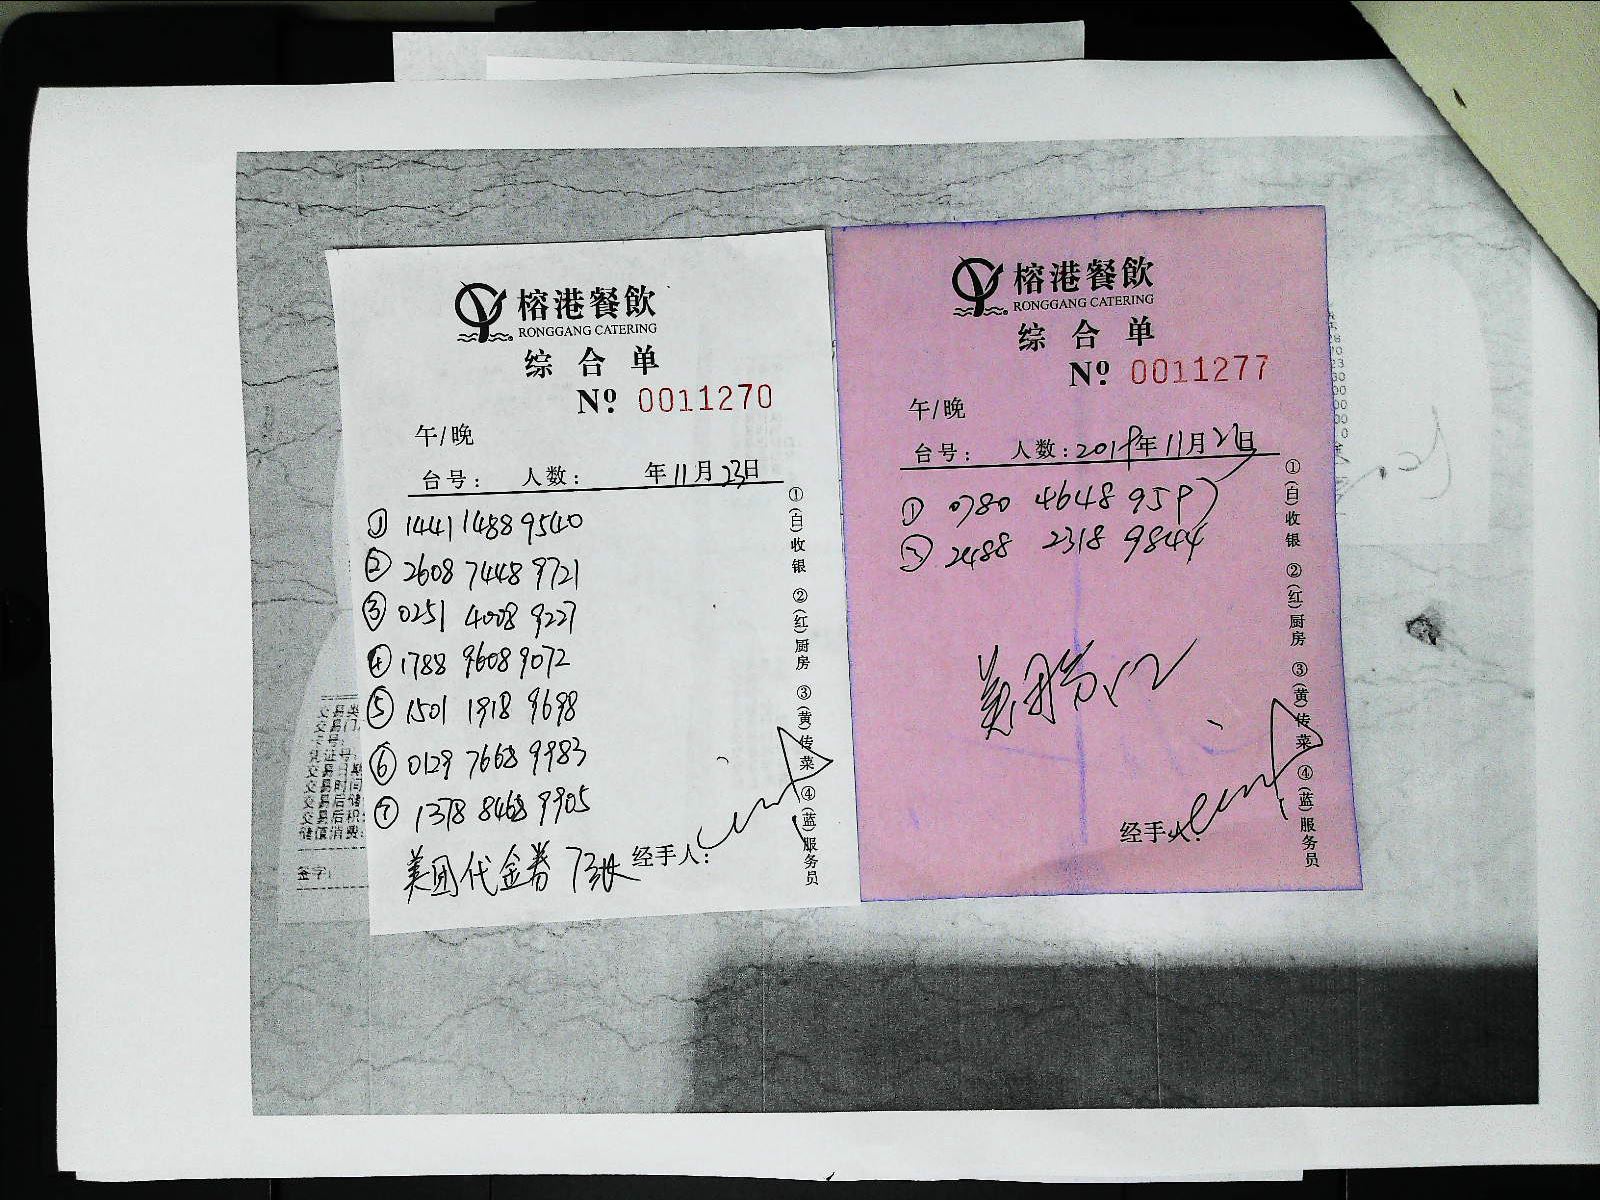 榕港餐飲
RONGGANG CATERING
综合单
Nº 0011270
午/晚
台号: 人数: 年11月23日
① 1441 1488 9540
② 2608 7448 9721
③ 0251 4008 9227
④ 1788 9608 9072
⑤ 1501 1918 9698
⑥ 0129 7668 9983
⑦ 1378 8468 9905
美团代金券 7张
经手人:
①(白)收银 ②(红)厨房 ③(黄)传菜 ④(蓝)服务员
榕港餐飲
RONGGANG CATERING
综合单
Nº 0011277
午/晚
台号: 人数: 年11月日
① 0780 4648 959
② 2488 2318 9844
经手人:
①(白)收银 ②(红)厨房 ③(黄)传菜 ④(蓝)服务员
签字: